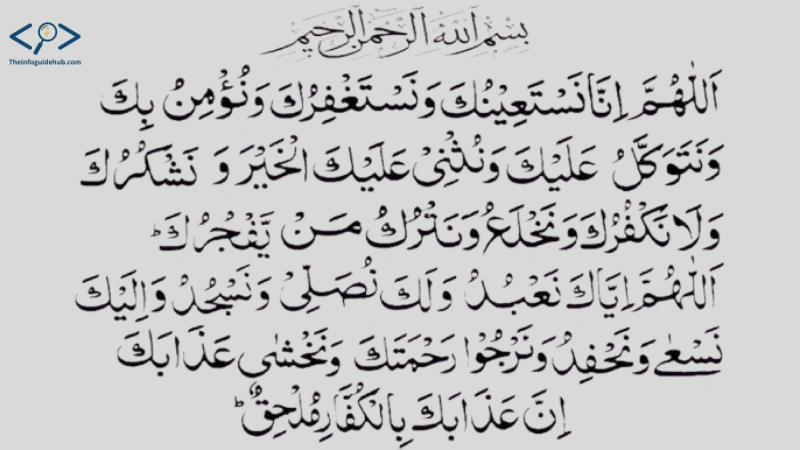 Theinfoguidehub.com
بسم الله الرحمن الرحيم
اَللّٰهُمَّ اِنَّا نَسْتَعِيْنُكَ وَنَسْتَغْفِرُكَ وَنُؤْمِنُ بِكَ
وَنَتَوَكَّلُ عَلَيْكَ وَنُثْنِىْ عَلَيْكَ الْخَيْرَ وَ نَشْكُرُكَ
وَلَا نَكْفُرُكَ وَنَخْلَعُ وَنَتْرُكُ مَنْ يَّفْجُرُكَ ؕ
اَللّٰهُمَّ اِيَّاكَ نَعْبُدُ وَلَكَ نُصَلِّىْ وَنَسْجُدُ وَاِلَيْكَ
نَسْعٰى وَنَحْفِدُ وَنَرْجُوْا رَحْمَتَكَ وَنَخْشٰى عَذَابَكَ
اِنَّ عَذَابَكَ بِالْكُفَّارِ مُلْحِقٌ ؕ